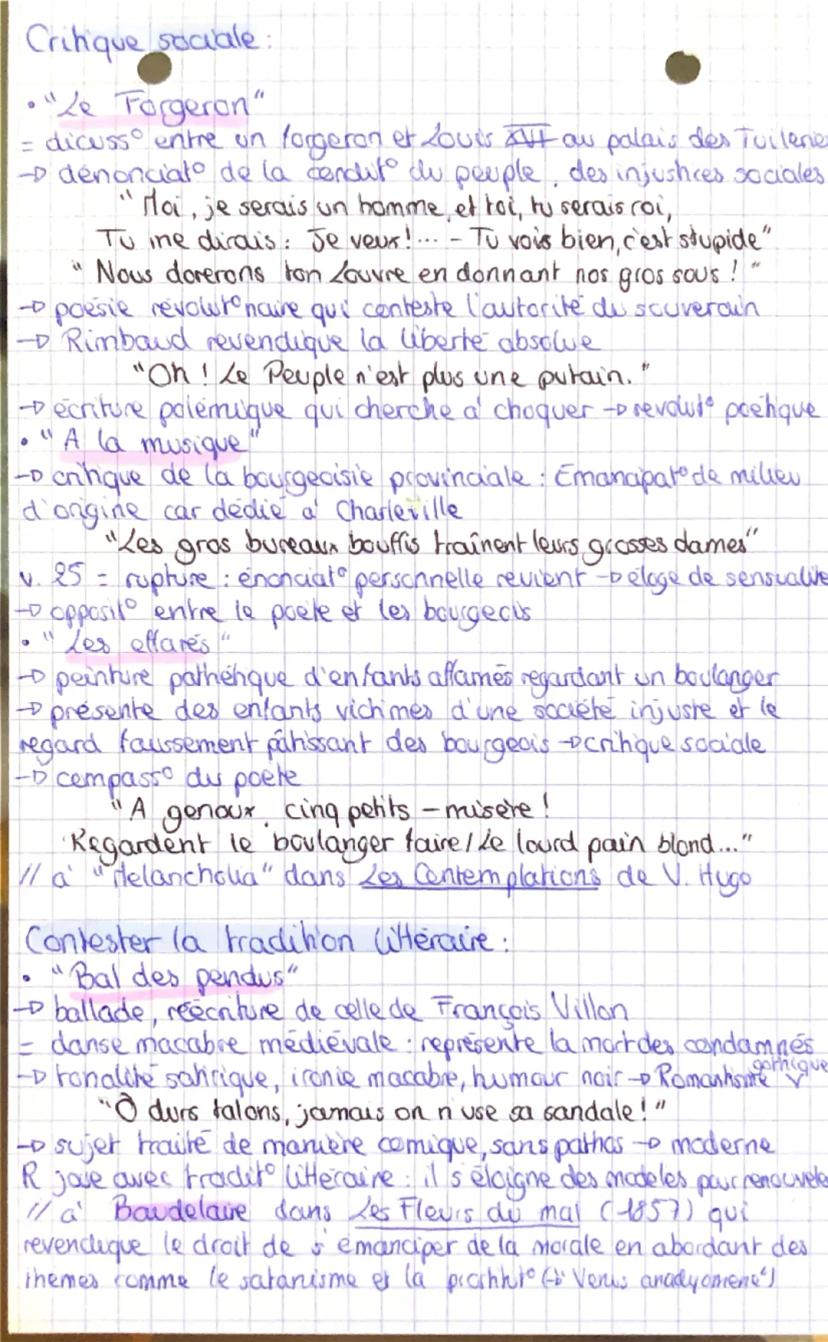 Critique sociale :
• "Le Forgeron"
= discuss° entre un forgeron et Louis XVI au palais des Tuileries
→ dénonciat° de la condit° du peuple, des injustices sociales
"Moi, je serais un homme, et toi, tu serais roi,
Tu me dirais : Je veux !... - Tu vois bien, c'est stupide"
"Nous dorerons ton Louvre en donnant nos gros sous ! "
→ poésie révolut°nnaire qui conteste l'autorité du souverain
→ Rimbaud revendique la liberté absolue
"Oh ! Le Peuple n'est plus une putain. "
→ écriture polémique qui cherche à choquer → révolut° poétique
• "A la musique"
→ critique de la bourgeoisie provinciale : Emanapat° de milieu
d'origine car dédié à Charleville
"Les gros bureaux bouffis traînent leurs grosses dames"
v. 25 = rupture : énonciat° personnelle revient → éloge de sensualité
→ opposit° entre le poète et les bourgeois
• "Les effarés"
→ peinture pathétique d'enfants affamés regardant un boulanger
→ présente des enfants victimes d'une société injuste et le
regard faussement pâtissant des bourgeois → critique sociale
→ compass° du poète
"A genoux, cinq petits - misère !
Regardent le boulanger faire / Le lourd pain blond..."
// à "Melancholia" dans Les Contemplations de V. Hugo
Contester la tradition littéraire :
• "Bal des pendus"
→ ballade, réécriture de celle de François Villon
= danse macabre médiévale : représente la mort des condamnés
→ tonalité satirique, ironie macabre, humour noir → Romantisme gothique
"Ô durs talons, jamais on n'use sa sandale ! "
→ sujet traité de manière comique, sans pathos → moderne
R joue avec tradit° littéraire : il s'éloigne des modèles pour renouveler
// à Baudelaire dans Les Fleurs du mal (1857) qui
revendique le droit de s'émanciper de la morale en abordant des
thèmes comme le satanisme et la prostitut° (→ "Venus anadyomène")